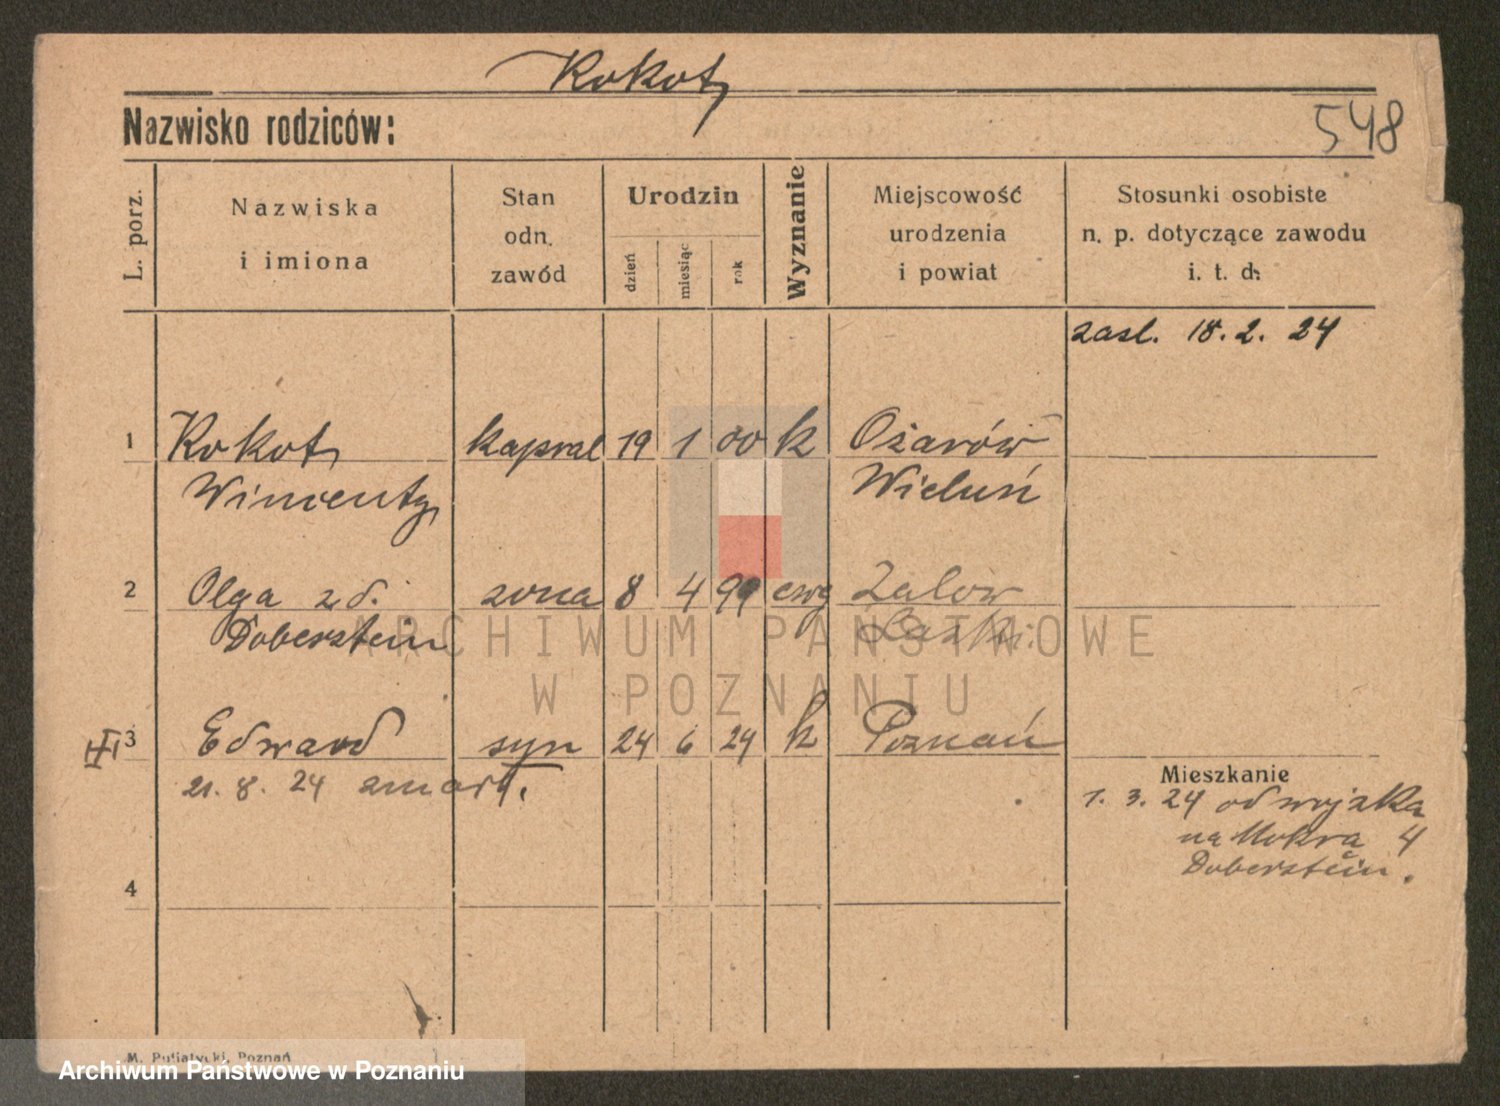 Kokot
Nazwisko rodziców:
548
L. porz.
Nazwiska
i imiona
Stan
odn.
zawód
Urodzin
dzień
miesiąc
rok
Wyznanie
Miejscowość
urodzenia
i powiat
Stosunki osobiste
n. p. dotyczące zawodu
i. t. d.
zasl. 18. 2. 24
1 Kokot kapral 19 1 00 k Ożarów
Wincenty Wieluń
2 Olga z d. zona 8 4 99 ewg Zelow
Doberstein Łaski
3 Edward syn 24 6 24 k Poznań
21. 8. 24 zmarł.
Mieszkanie
1. 3. 24 od wojska
na Mokra 4
Doberstein.
4
M. Putiatycki, Poznań
ARCHIWUM PAŃSTWOWE
W POZNANIU
Archiwum Państwowe w Poznaniu